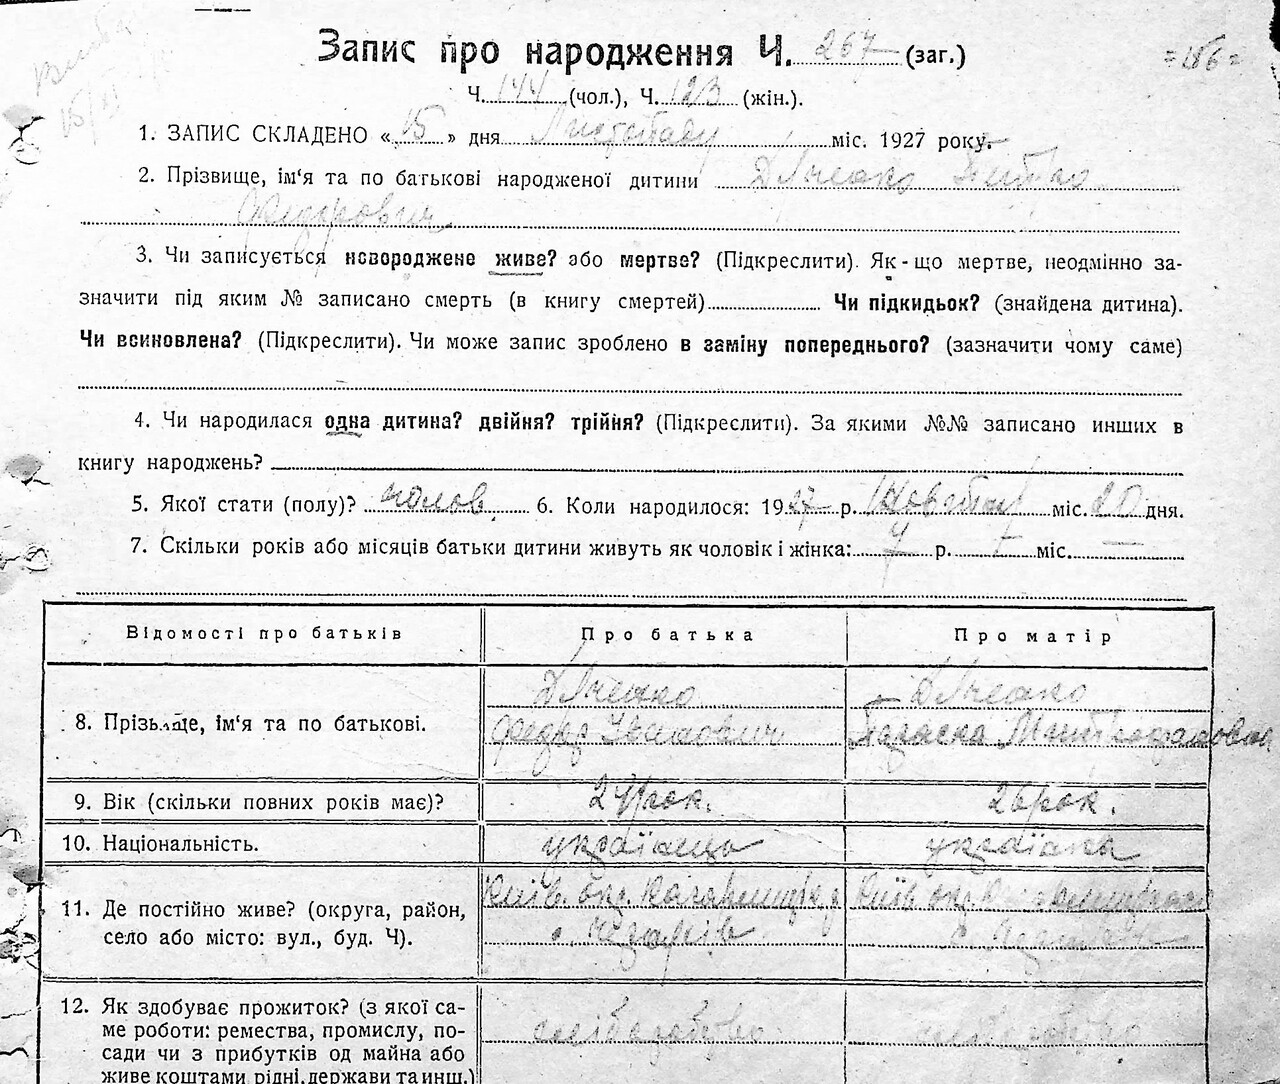 Запис про народження Ч. 267 (заг.)
= 186 =
Ч. 144 (чол.), Ч. 123 (жін.).
15/XI
1. ЗАПИС СКЛАДЕНО « 15 » дня Листопаду міс. 1927 року.
2. Прізвище, ім'я та по батькові народженої дитини
Федорович
3. Чи записується новороджене живе? або мертве? (Підкреслити). Як-що мертве, неодмінно за-
значити під яким № записано смерть (в книгу смертей) Чи підкидьок? (знайдена дитина).
Чи всиновлена? (Підкреслити). Чи може запис зроблено в заміну попереднього? (зазначити чому саме)
4. Чи народилася одна дитина? двійня? трійня? (Підкреслити). За якими №№ записано инших в
книгу народжень?
5. Якої стати (полу)? чолов. 6. Коли народилося: 1927 р. Жовтня міс. 20 дня.
7. Скільки років або місяців батьки дитини живуть як чоловік і жінка: 7 р. міс. —
Відомості про батьків Про батька Про матір
8. Прізьище, ім'я та по батькові.
Федір Іванович Параска
9. Вік (скільки повних років має)? 24 рок. 26 рок.
10. Національність. українець українка
11. Де постійно живе? (округа, район,
село або місто: вул., буд. Ч).
Київ. окр. Київ. окр.
12. Як здобуває прожиток? (з якої са-
ме роботи: ремества, промислу, по-
сади чи з прибутків од майна або
живе коштами рідні, держави та инш.)
хліборобство хліборобство